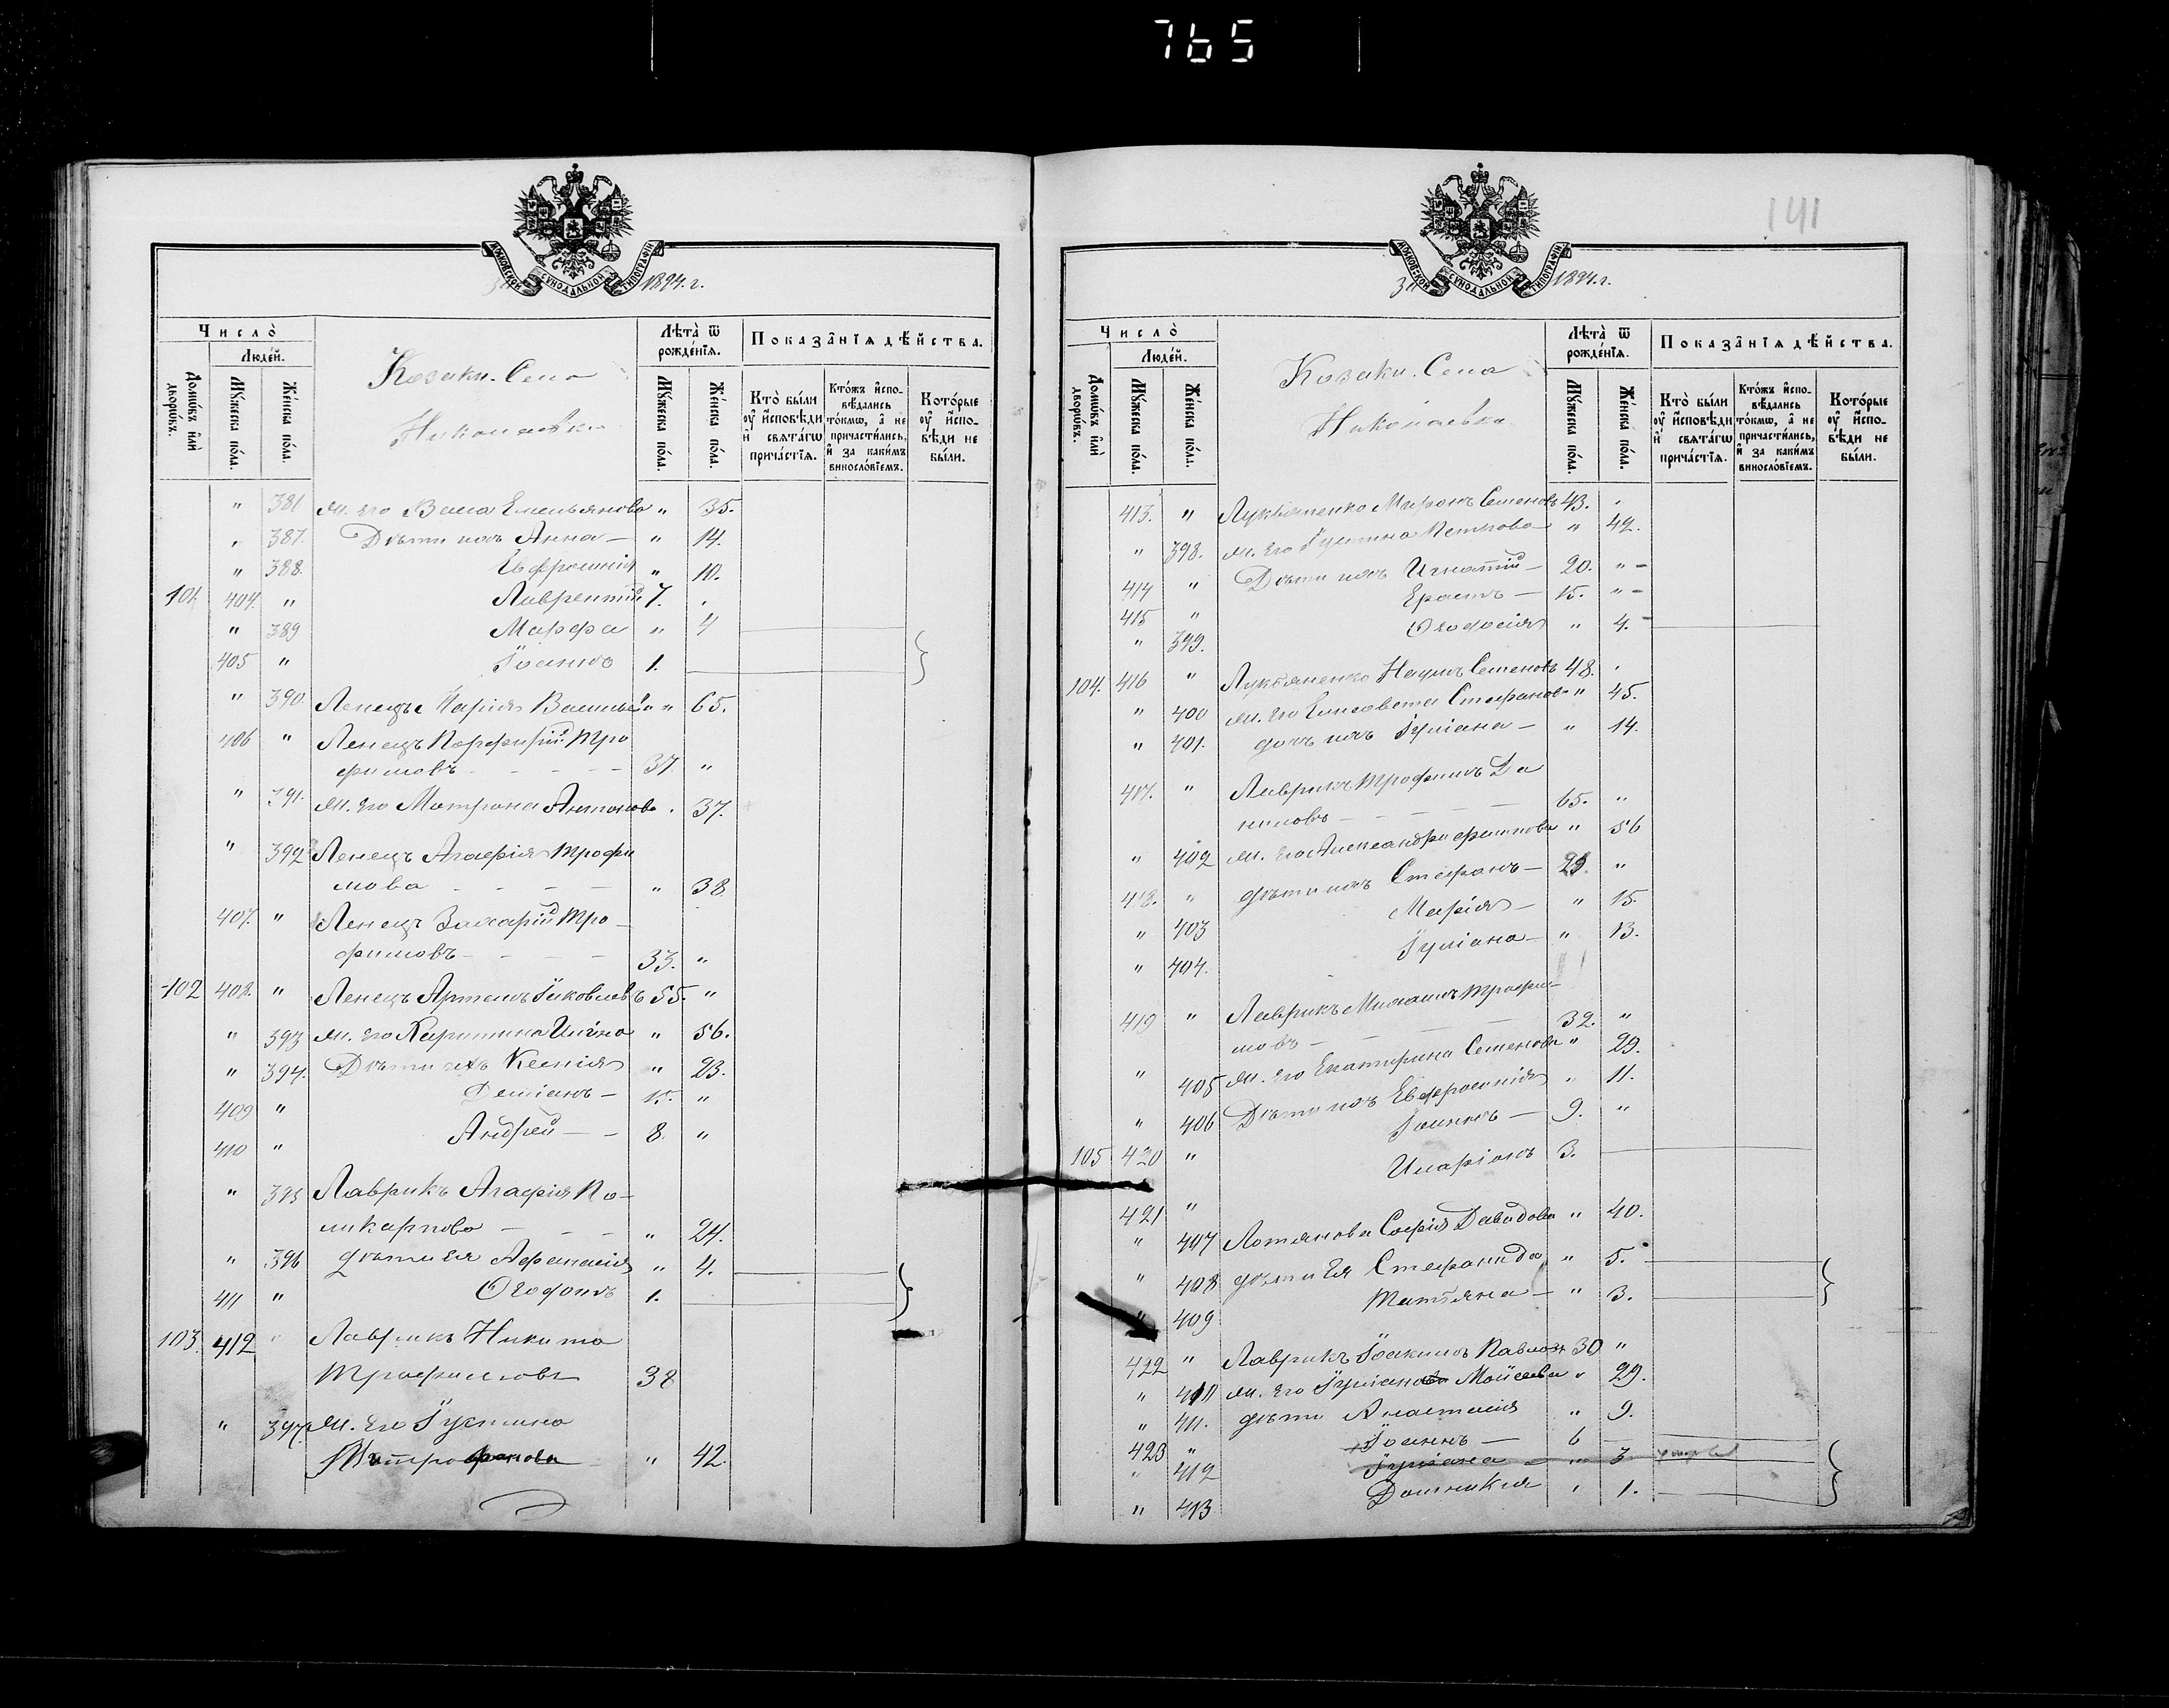 765
МОСКОВСКОЙ СѴНОДАЛЬНОЙ ТИПОГРАФІИ
1894. г.
Число̀
Люде́й.
Домѡ́въ и҆лѝ дворѡ́въ.
Мꙋ́жеска по́ла.
Же́нска по́ла.
Козаки. Села
Николаевки
Лѣта̀ ѿ рожде́нїѧ.
Мꙋ́жеска по́ла.
Же́нска по́ла.
Показа̑нїѧ дѣ́йства.
Кто̀ бы́ли оу҆ и҆сповѣ́ди и҆ свѧта́гѡ прича́стїѧ.
Кто́жъ и҆спо-вѣ́дались то́кмѡ, а҆ не причасти́лись, и҆ за каки́мъ винослові́емъ.
Кото́рые оу҆ и҆спо-вѣ́ди не бы́ли.
" 381 ж. его Васса Емельянова " 35.
" 387. Дѣти ихъ Анна — " 14.
" 388. Евфросинія " 10.
101. 404. " Лаврентій 7. "
" 389 Марфа " 4
405 " Іоаннъ 1.
" 390. Ленецъ Марія " 65.
406 " Ленецъ Порфирій Тро
фимовъ - - - - 37 "
" 391. ж. его Матрона Антонова " 37.
" 392 Ленецъ Агафія Трофи
мова - - - - " 38
407. " Ленецъ Захарій Тро-
фимовъ - - - - 33. "
102 408. " Ленецъ Артемъ Іаковлевъ 55. "
" 393 ж. его Харитина " 56.
" 394. Дѣти ихъ Ксенія " 23.
409 " Деміанъ — 15. "
410 " Андрей — - 8. "
" 395 Лаврикъ Агафія По-
ликарпова - - - " 24.
" 396 дѣти ея Афанасія " 4.
411 " Агафонъ 1.
103. 412 " Лаврикъ Никита
Трофимовъ 38
" 397. ж. его Іустина
" 42.
141
МОСКОВСКОЙ СѴНОДАЛЬНОЙ ТИПОГРАФІИ
За 1894. г.
Число̀
Люде́й.
Домѡ́въ и҆лѝ дворѡ́въ.
Мꙋ́жеска по́ла.
Же́нска по́ла.
Козаки. Села
Николаевки
Лѣта̀ ѿ рожде́нїѧ.
Мꙋ́жеска по́ла.
Же́нска по́ла.
Показа̑нїѧ дѣ́йства.
Кто̀ бы́ли оу҆ и҆сповѣ́ди и҆ свѧта́гѡ прича́стїѧ.
Кто́жъ и҆спо-вѣ́дались то́кмѡ, а҆ не причасти́лись, и҆ за каки́мъ винослові́емъ.
Кото́рые оу҆ и҆спо-вѣ́ди не бы́ли.
413. " Лукьяненко Миронъ Семеновъ 43. "
" 398. ж. его Іустина Петрова " 42.
414 " Дѣти ихъ Игнатій — 20. " -
415 " Ерастъ — 15. " -
" 399. " 4.
104. 416 " Лукьяненко Наумъ Семеновъ 48. "
" 400 ж. его Елисавета Стефанова " 45.
" 401. дочь ихъ Іуліана — " 14.
417. " Лаврикъ Трофимъ Да
ниловъ - - - 65. "
" 402 ж. его Александра " 56
418. " дѣти ихъ Стефанъ — "
" 403 Марія — " 15.
" 404. Іуліана — " 13.
419 " Лаврикъ Михаилъ Трофи-
мовъ - - - 32. "
" 405 ж. его Екатерина Семенова " 29.
" 406 Дѣти ихъ Евфросинія " 11.
105 420 " Іоаннъ — 9. "
421 " Иларіонъ 3.
" 407 Софія Давидова " 40.
" 408 дѣти ея Стефанида " 5.
" 409 Татіана — " 3.
422 " Лаврикъ Іоакимъ Павловъ 30 "
" 410 ж. его Іуліана Мойсеева " 29.
" 411. дѣти Анастасія " 9.
423 " Іоаннъ — 6
" 412 Іуліана — " 3
" 413 Домникія " 1.